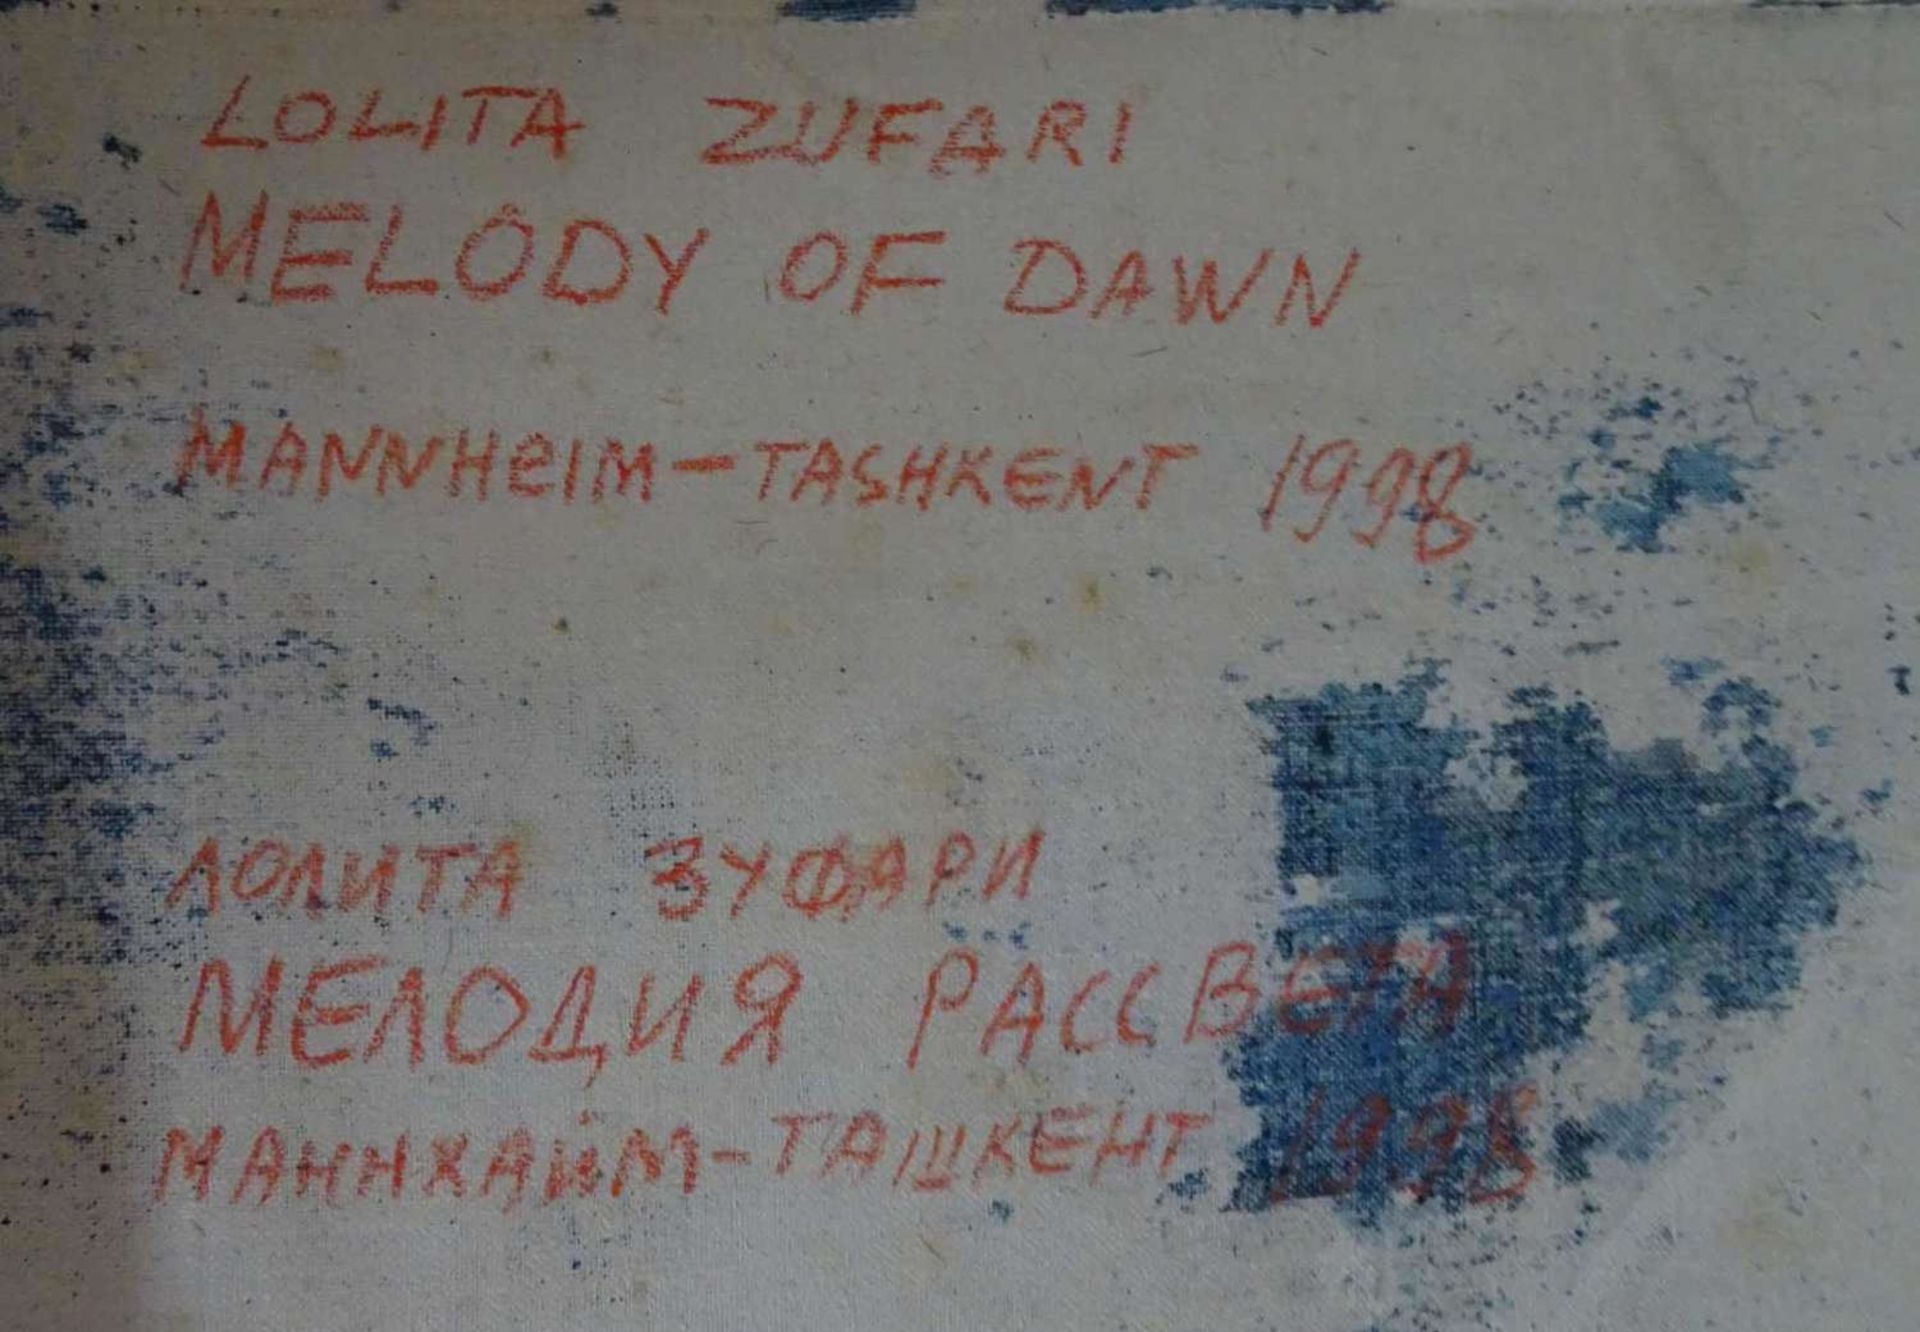 LOLITA ZUFARI
MELODY OF DAWN
MANNHeIM-TASHKENT 1998
ЛОЛИТА ЗУФАРИ
МЕЛОДИЯ РАССВЕТА
МАННХАЙМ-ТАШКЕНТ 1998